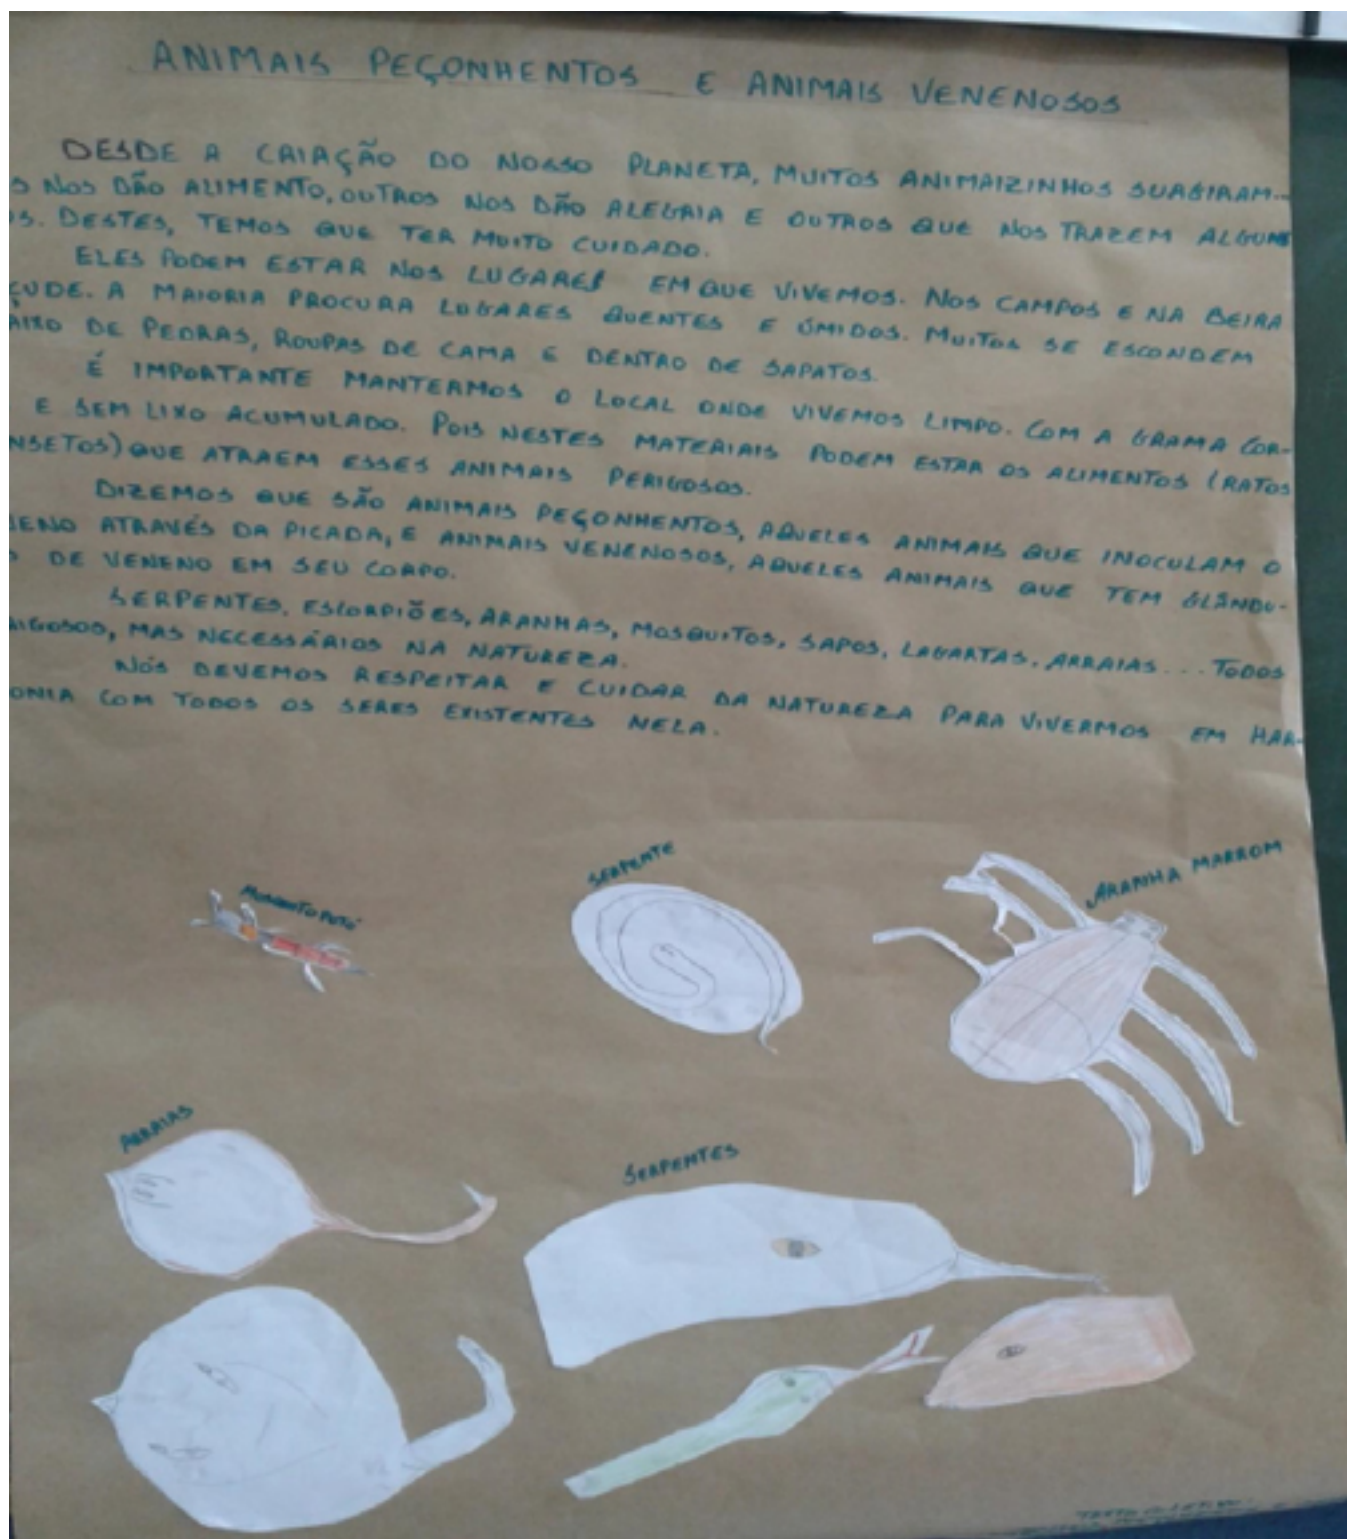 ANIMAIS PEÇONHENTOS E ANIMAIS VENENOSOS
DESDE A CRIAÇÃO DO NOSSO PLANETA, MUITOS ANIMAIZINHOS SURGIRAM...
S NOS DÃO ALIMENTO, OUTROS NOS DÃO ALEGRIA E OUTROS QUE NOS TRAZEM ALGUNS
OS. DESTES, TEMOS QUE TER MUITO CUIDADO.
ELES PODEM ESTAR NOS LUGARES EM QUE VIVEMOS. NOS CAMPOS E NA BEIRA
ÇUDE. A MAIORIA PROCURA LUGARES QUENTES E ÚMIDOS. MUITOS SE ESCONDEM
AIXO DE PEDRAS, ROUPAS DE CAMA E DENTRO DE SAPATOS.
É IMPORTANTE MANTERMOS O LOCAL ONDE VIVEMOS LIMPO. COM A GRAMA COR-
E SEM LIXO ACUMULADO. POIS NESTES MATERIAIS PODEM ESTAR OS ALIMENTOS (RATOS
NSETOS) QUE ATRAEM ESSES ANIMAIS PERIGOSOS.
DIZEMOS QUE SÃO ANIMAIS PEÇONHENTOS, AQUELES ANIMAIS QUE INOCULAM O
ENO ATRAVÉS DA PICADA, E ANIMAIS VENENOSOS, AQUELES ANIMAIS QUE TEM GLÂNDU-
DE VENENO EM SEU CORPO.
SERPENTES, ESCORPIÕES, ARANHAS, MOSQUITOS, SAPOS, LAGARTAS, ARRAIAS... TODOS
RIGOSOS, MAS NECESSÁRIOS NA NATUREZA.
NÓS DEVEMOS RESPEITAR E CUIDAR DA NATUREZA PARA VIVERMOS EM HAR-
ONIA COM TODOS OS SERES EXISTENTES NELA.
MOSQUITO
SERPENTE
ARANHA MARROM
ARRAIAS
SERPENTES
TEXTO COLETIVO